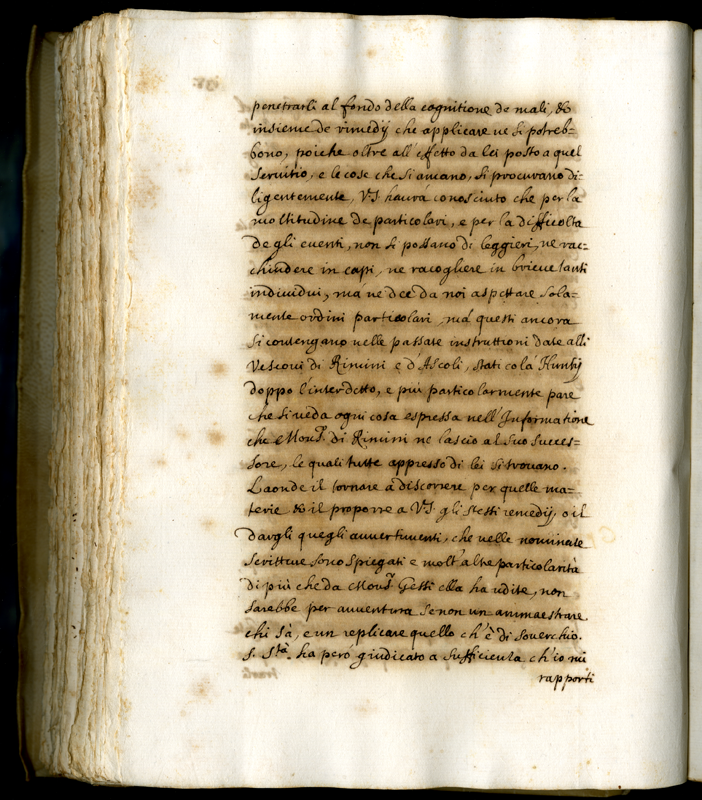 penetrarli al fondo della cognitione de mali, &
insieme de rimedij che applicare ve si potreb=
bono, poiche oltre all'effetto da lei posto a quel
servitio, e le cose che si amano, si procurano di=
ligentemente, V.S. haurà conosciuto che per la
moltitudine de particolari, e per la difficoltà
degli eventi, non si possano di leggieri, ne rac=
chiudere in capi, ne racogliere in brieve tanti
individui, mà ne dee da noi aspettare sola=
mente ordini particolari, mà questi ancora
si contengano nelle passate instruttioni date alli
Vescoui di Rimini e d'Ascoli, stati colà Huntij
doppo l'interdetto, e più particolarmente pare
che si veda ogni cosa espressa nell'Informatione
che Mons.r di Rimini ne lascio al suo succes=
sore, le quali tutte appresso di lei si trouano.
Laonde il tornare à discorrere per quelle ma=
terie & il proporre a V.S. gli stessi remedij, o il
dargli quegli auuertimenti, che nelle nominate
scritture sono spiegati e molt'altre particolarità
di più che da Mons.r Gessi ella ha udite, non
sarebbe per auuentura se non un ammaestrare
chi sà, e un replicare quello ch'è di souerchio.
S. S.tà ha però giudicato a sufficienza ch'io mi
rapporti